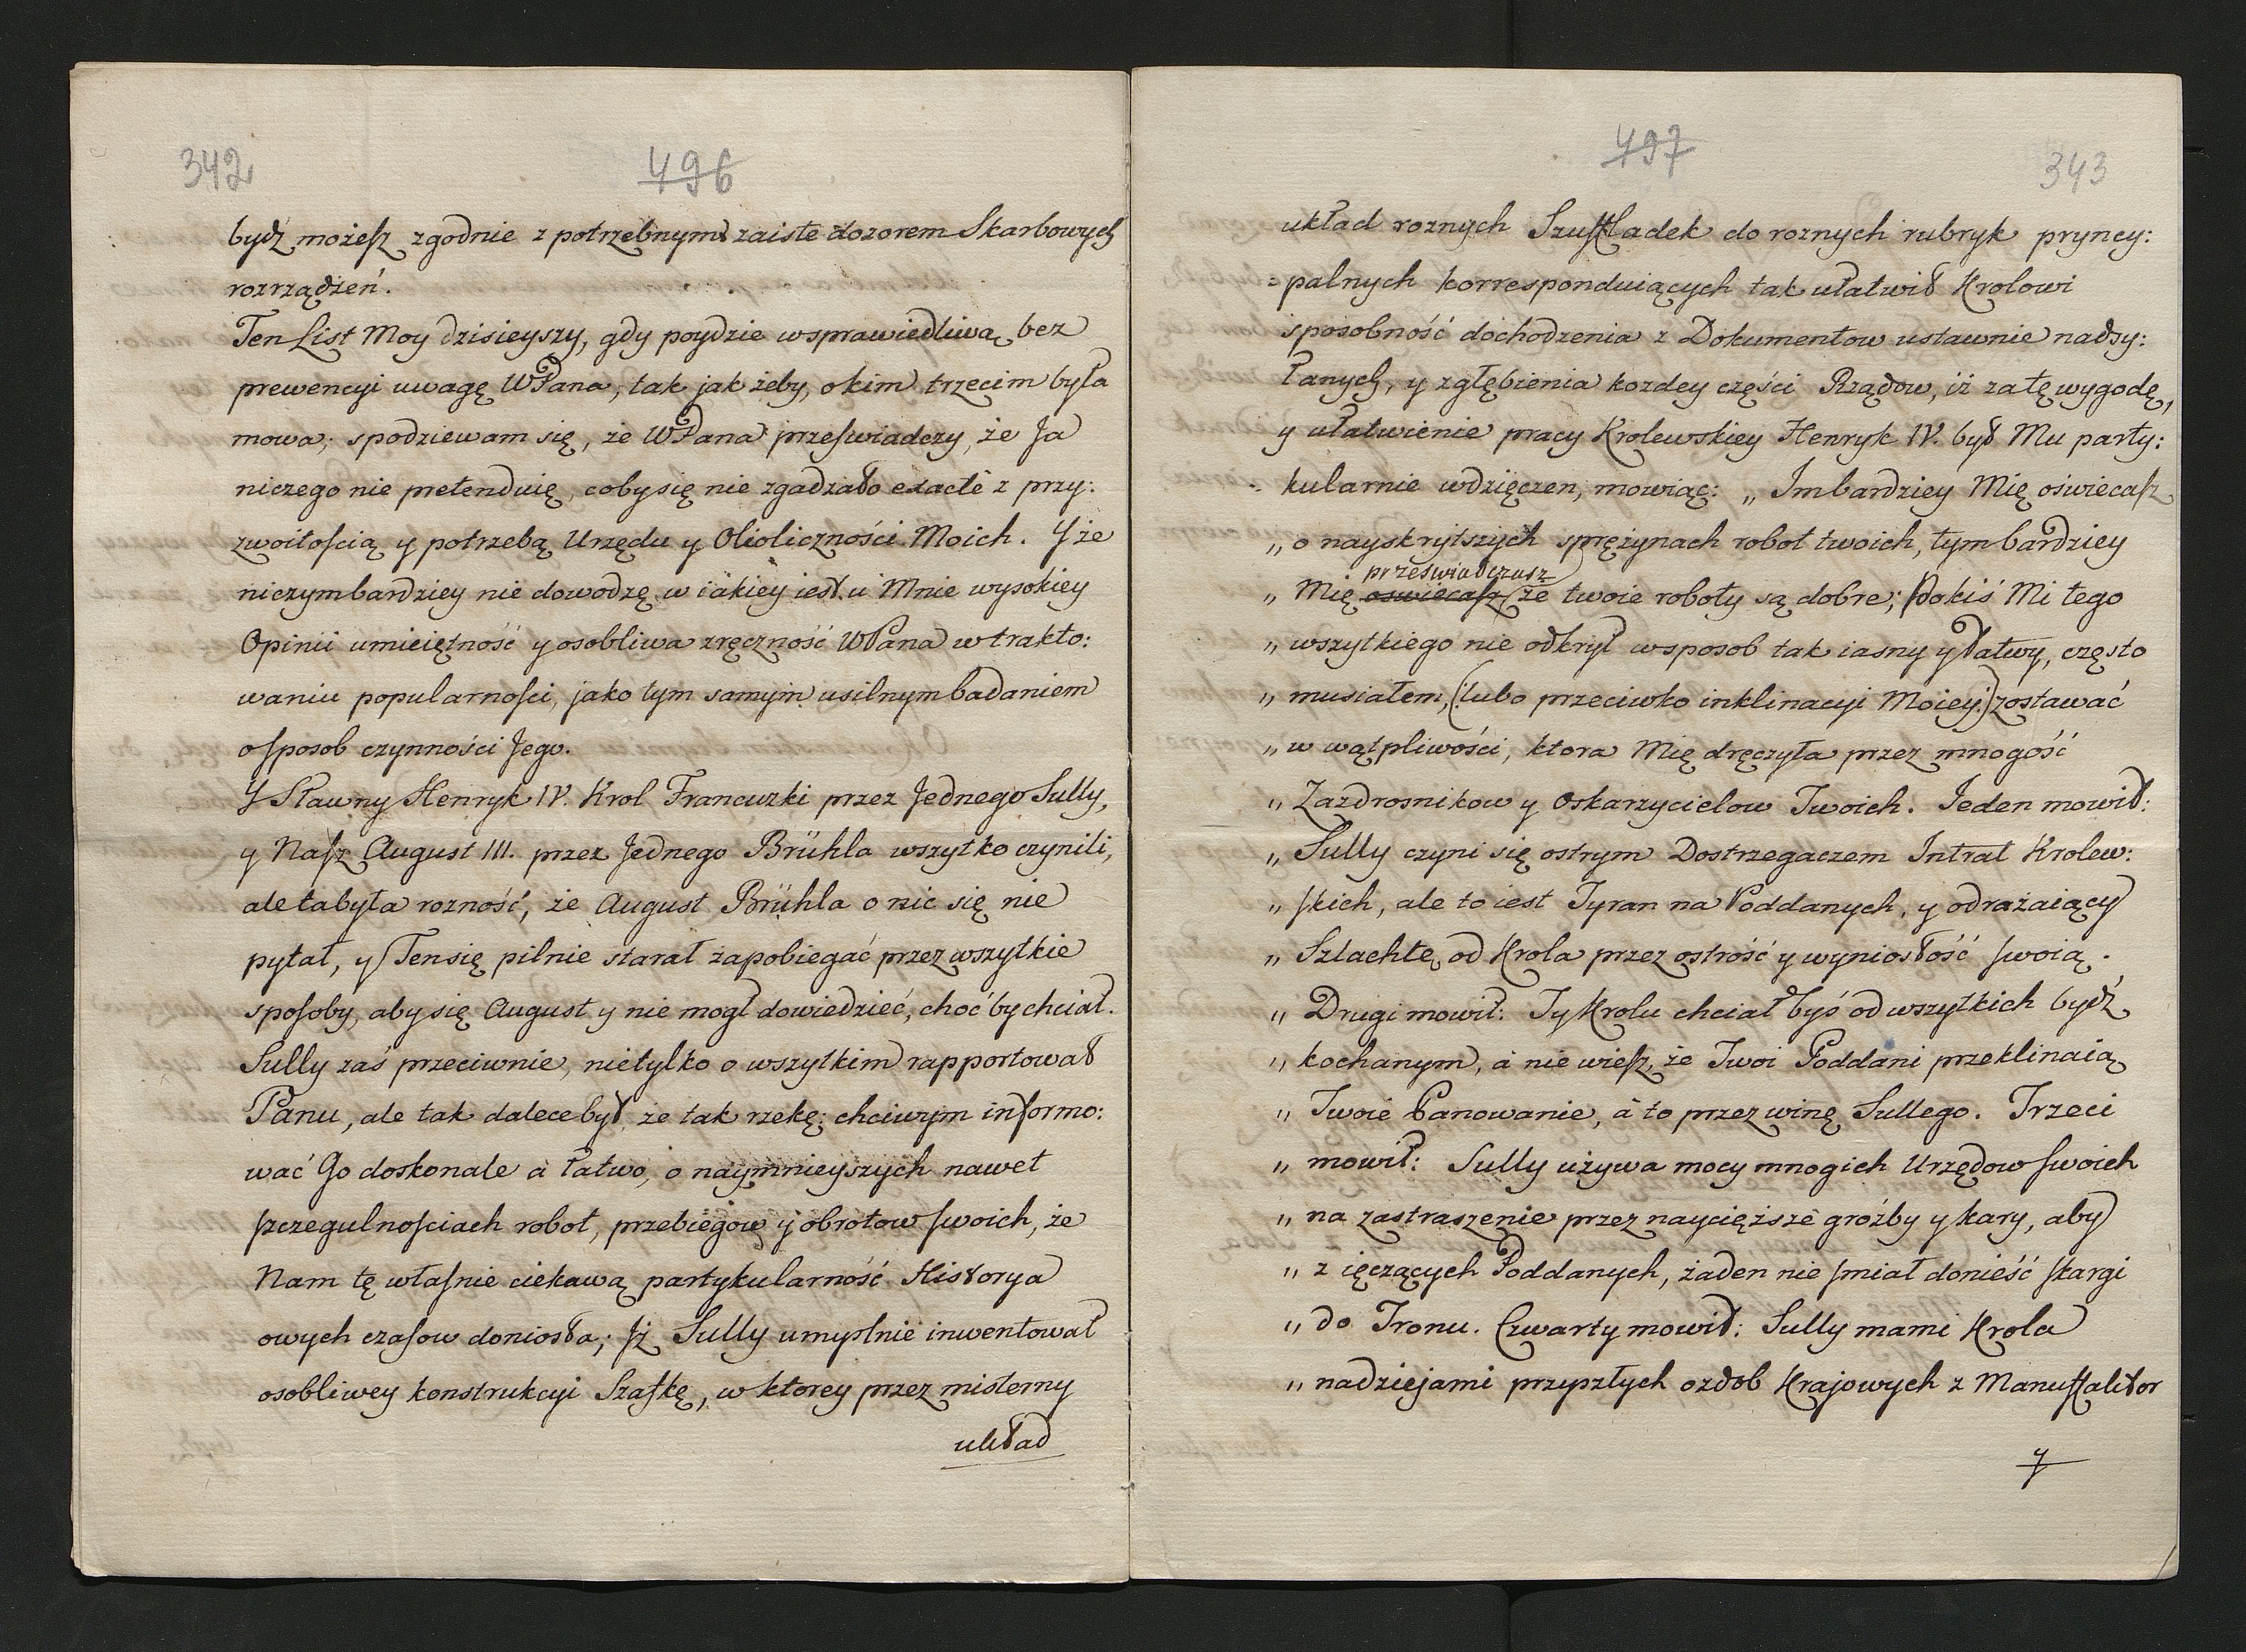 342
496
bydz możeſz zgodnie z potrzebnym zaiste dozorem Skarbowych
rozrządzeń.
Ten List Moy dzisieyszy, gdy poydzie w sprawiedliwą bez
prewencyi uwagę WPana, tak jak żeby, o kim trzecim była
mowa; spodziewam się, że WPana przeſwiadczy, że Ja
niczego nie pretenduię, coby się nie zgadzało exactè z przy:
zwoitoſcią y potrzebą Urzędu y Okoliczności Moich. Y że
niczym bardziey nie dowodzę w iákiey iest u Mnie wysokiey
Opinii umieiętność y osobliwa zręczność WPana w trakto:
waniu popularnoſci, jako tym samym usilnym badaniem
o ſposob czynności Jego.
Y Sławny Henryk IV. Krol Francuzki przez Jednego Sully,
y Naſz August III. przez Jednego Brühla wszytko czynili,
ale ta była rozność, że August Brühla o nic się nie
pytał, y Ten się pilnie starał zapobiegać przez wszytkie
spoſoby, aby się August y nie mogł dowiedzieć, choć by chciał.
Sully zaś przeciwnie, nietylko o wszytkim rapportował
Panu, ale tak dalece był, że tak rzekę: chciwym informo:
wać Go doskonale a łatwo, o naymnieyszych nawet
ſzczegulnoſciach robot, przebiegow y obrotow ſwoich, że
Nam tę właſnie ciekawą partykularność Historya
owych czaſow doniosła; Jż Sully umyslnie inwentował
osobliwey konstrukcyi Szafkę, w ktorey przez misterny
układ
497
343
układ roznych Szufladek do roznych rubryk pryncy:
=palnych korresponduiących tak ułatwił Krolowi
sposobność dochodzenia z Dokumentow ustawnie nadsy:
łanych, y zgłębienia kozdey części Rządow, iż za tę wygodę,
y ułatwienie pracy Krolewskiey Henryk IV. był Mu party:
kularnie wdzięczen, mowiąc: „Im bardziey Mię oświecaſz
„o nayskrytszych sprężynach robot twoich, tym bardziey
przeswiadczasz
„Mię oswiecaſz że twoie roboty są dobre; Pokiś Mi tego
„wszytkiego nie odkrył w sposob tak iasny y łatwy, często
„musiałem, (lubo przeciwko inklinacyi Moiey) zostawać
„w wątpliwości, ktora Mię dręczyła przez mnogość
„Zazdrosnikow y Oskarzycielow Twoich. Jeden mowił:
„Sully czyni się ostrym Dostrzegaczem Intrat Krolew:
„ſkich, ale to iest Tyran na Poddanych, y odrażaiący
„Szlachtę od Krola przez ostrość y wyniosłość ſwoią.
„Drugi mowił: Ty Krolu chciał byś od wszytkich bydź
„kochanym, á nie wieſz, że Twoi Poddani przeklinaią
„Twoie Panowanie, á to przez winę Sullego. Trzeci
„mowił: Sully używa mocy mnogich Urzędow ſwoich
„na zastraszenie przez naycięższe groźby y kary, aby
„z ięczących Poddanych, żaden nie ſmiał donieść ſkargi
„do Tronu. Czwarty mowił: Sully mami Krola
„nadziejami przyszłych ozdob Krajowych z Manufaktor
y